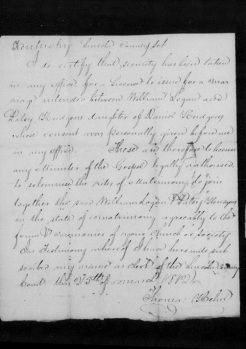 Kentucky Lincoln county Sct.
I do certify that security has been taken
in my office for a License to issue for a mar
riage intended between William Logan and
Patsy daughter of Daniel
whose consent was personally given before me
in my office. These are therefore to
any Minister of the Gospel legally authorised
to solemnize the rites of Matrimony to join
together the said William Logan & Patsy
in the state of matrimony agreeably to the
form & of your Church or Society
In Testimony whereof I have hereunto sub
scribed my name as Clerk of the Lincoln
Court this
Thomas